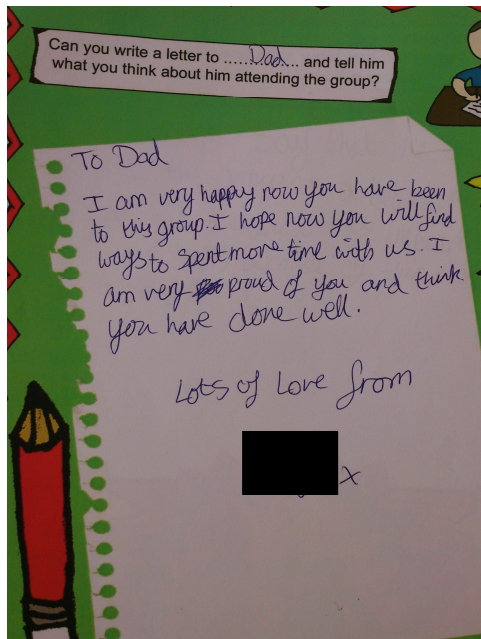 Can you write a letter to ......Dad.... and tell him
what you think about him attending the group?
To Dad
I am very happy now you have been
to this group. I hope now you will find
ways to spent more time with us. I
am very proud of you and think
you have done well.
Lots of Love from
x